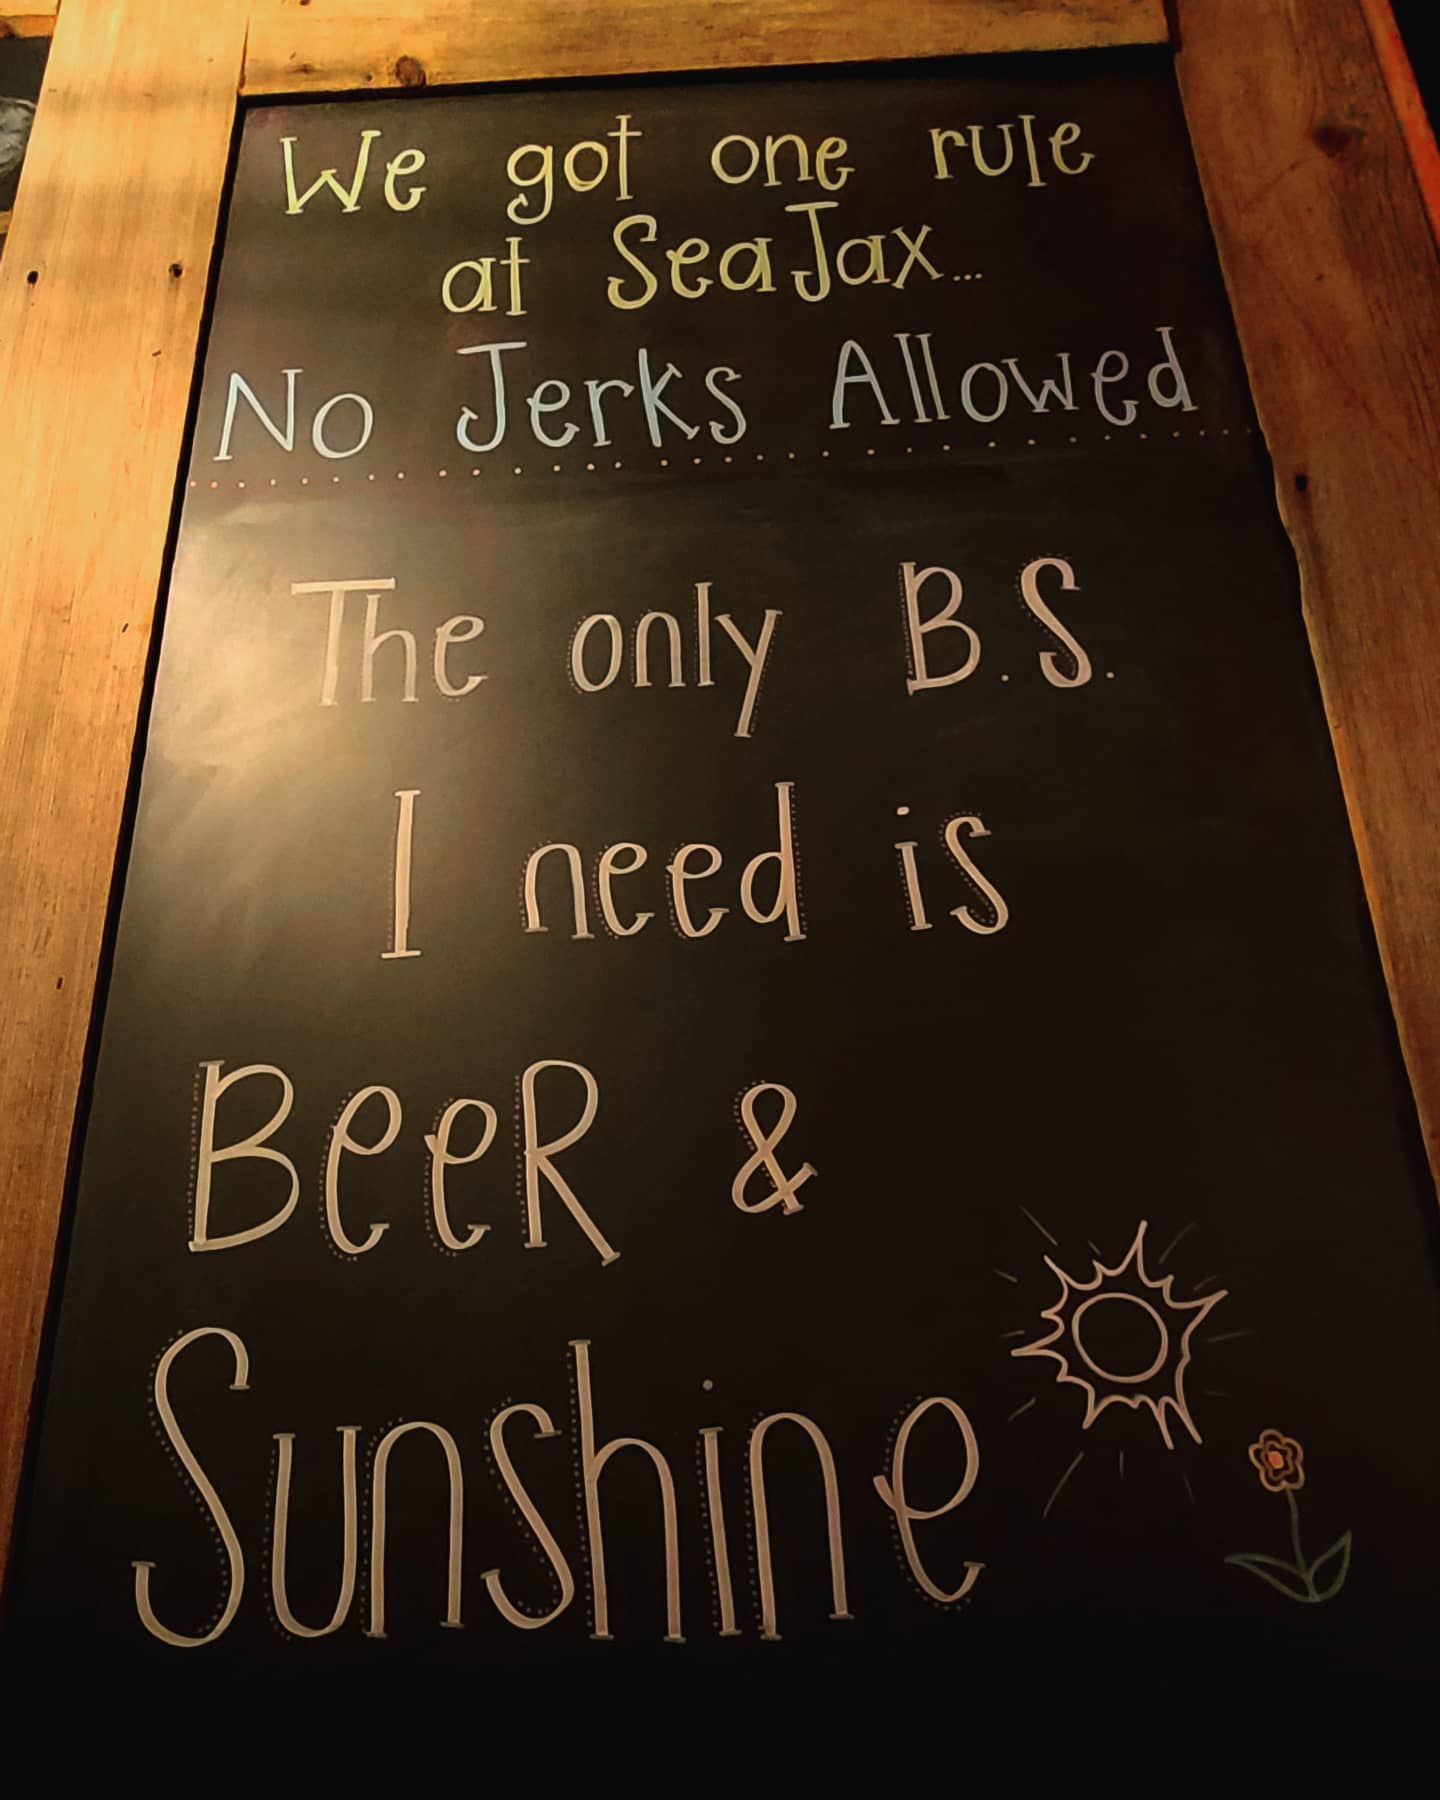 We got one rule
at SeaJax...
No Jerks Allowed
The only B.S.
I need is
BeeR &
Sunshine